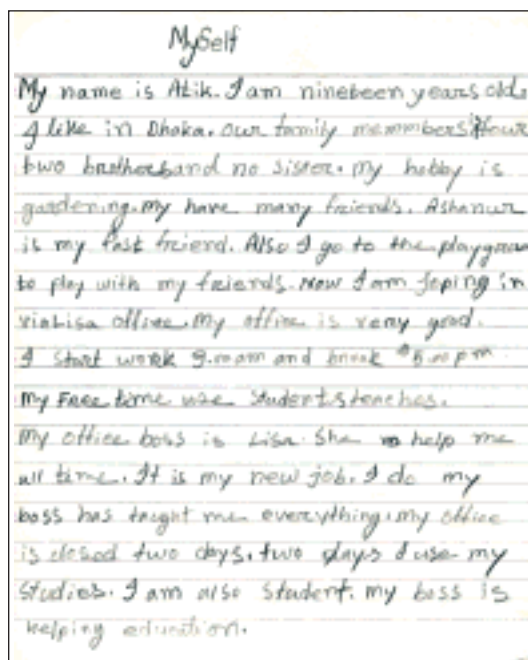 MySelf
My name is Atik. I am nineteen years old.
I like in Dhaka. our family memmbers four
two brothers and no sister. my hobby is
gardening. my have many friends. Ashanur
is my fast frierd. Also I go to the playgroun
to play with my friends. Now I am joping in
office. my office is very good.
I start work 9.00am and break 5.00pm
my Free time use students teaches.
my office boss is Lisa. She help me
all time. It is my new job. I do my
boss has taught me everything. my office
is closed two days. two days I use my
studies. I am also student. my boss is
helping education.